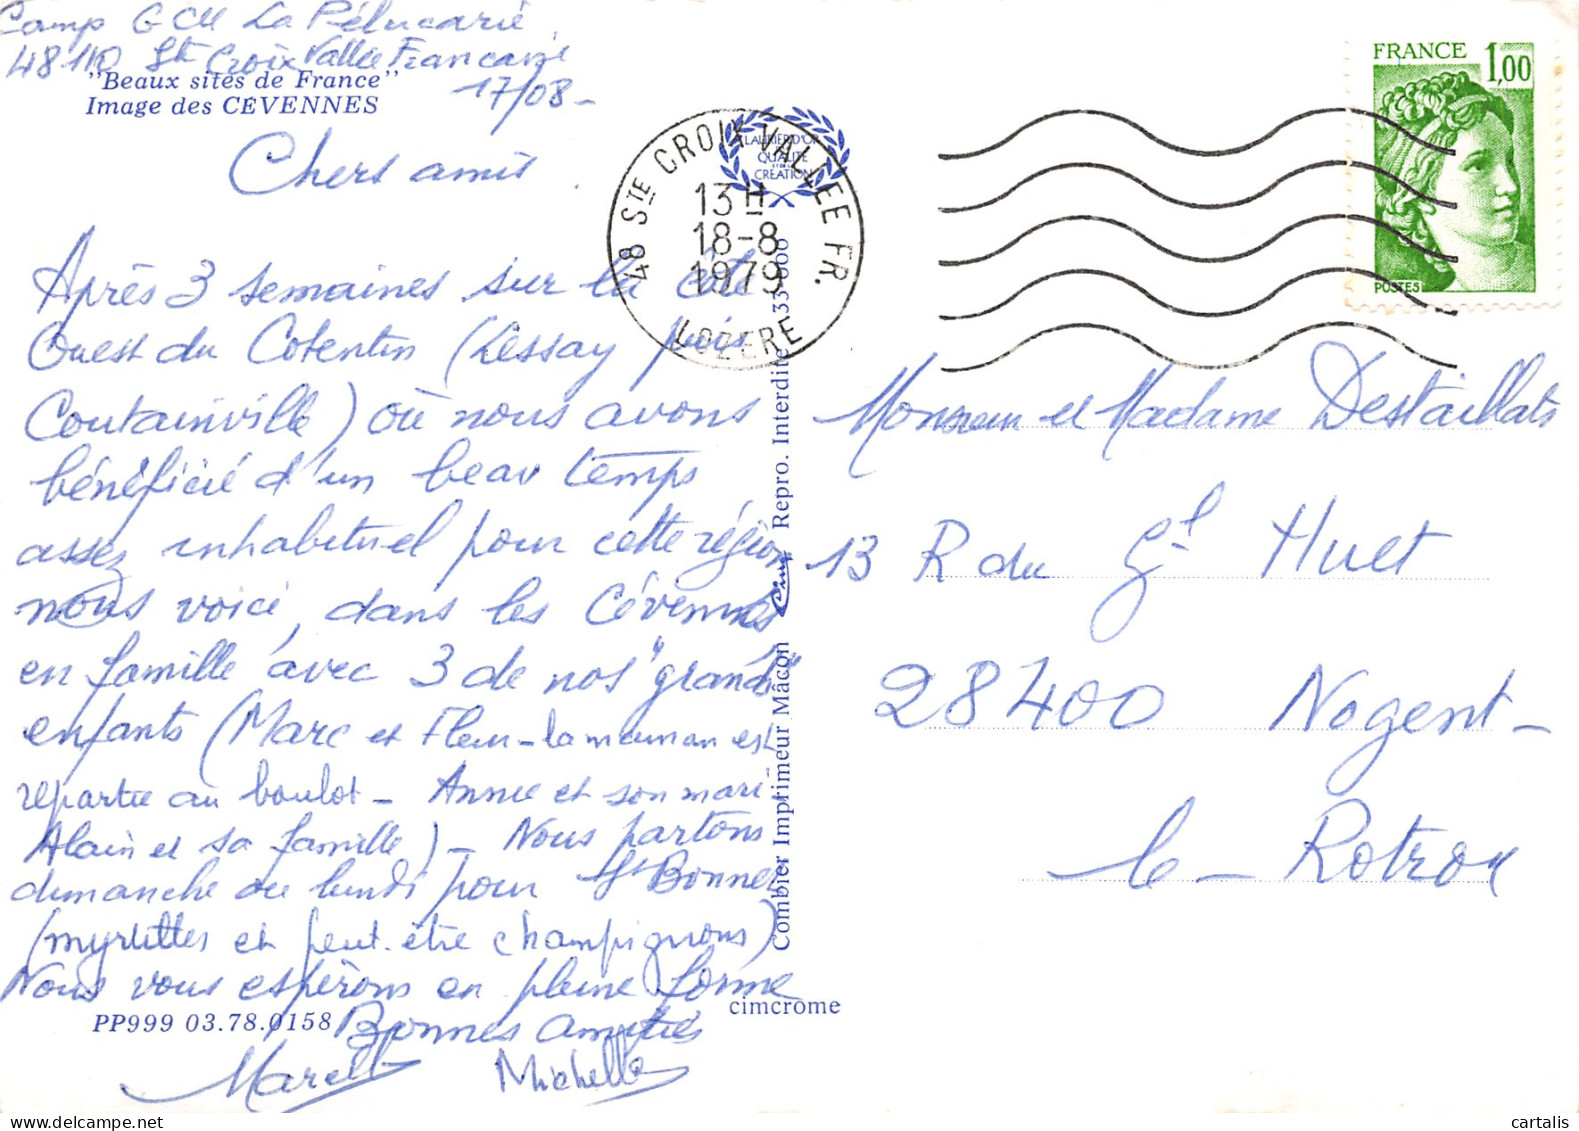 Camp GCU La Pélucarié
48110 Ste Croix Vallée Française
"Beaux sites de France"
17/08-
Image des CÉVENNES
Chers amis.
Après 3 semaines sur la côte
Ouest du Cotentin (Lessay puis
Coutainville) où nous avons
bénéficié d'un beau temps
assez inhabituel pour cette région
nous voici, dans les Cévennes
en famille avec 3 de nos "grands"
enfants (Marc et Fleur - la maman est
repartie au boulot - Annie et son mari
Alain et sa famille) - Nous partons
dimanche ou lundi pour St Bonnet
(myrtilles et peut-être champignons)
Nous vous espérons en pleine forme
PP999 03.78.0158
Bonnes amitiés
Marcel
Michelle
cimcrome
Combier Imprimeur Mâcon Cim Repro. Interdite 33 000
LAURIER D'OR
QUALITÉ
CRÉATION
48 STE CROIX VALLEE FR.
13H
18-8
1979
LOZERE
FRANCE 1,00
POSTES
Monsieur et Madame Destaillats
13 R du Gl Huet
28400 Nogent-
le-Rotrou
cartalis
www.delcampe.net